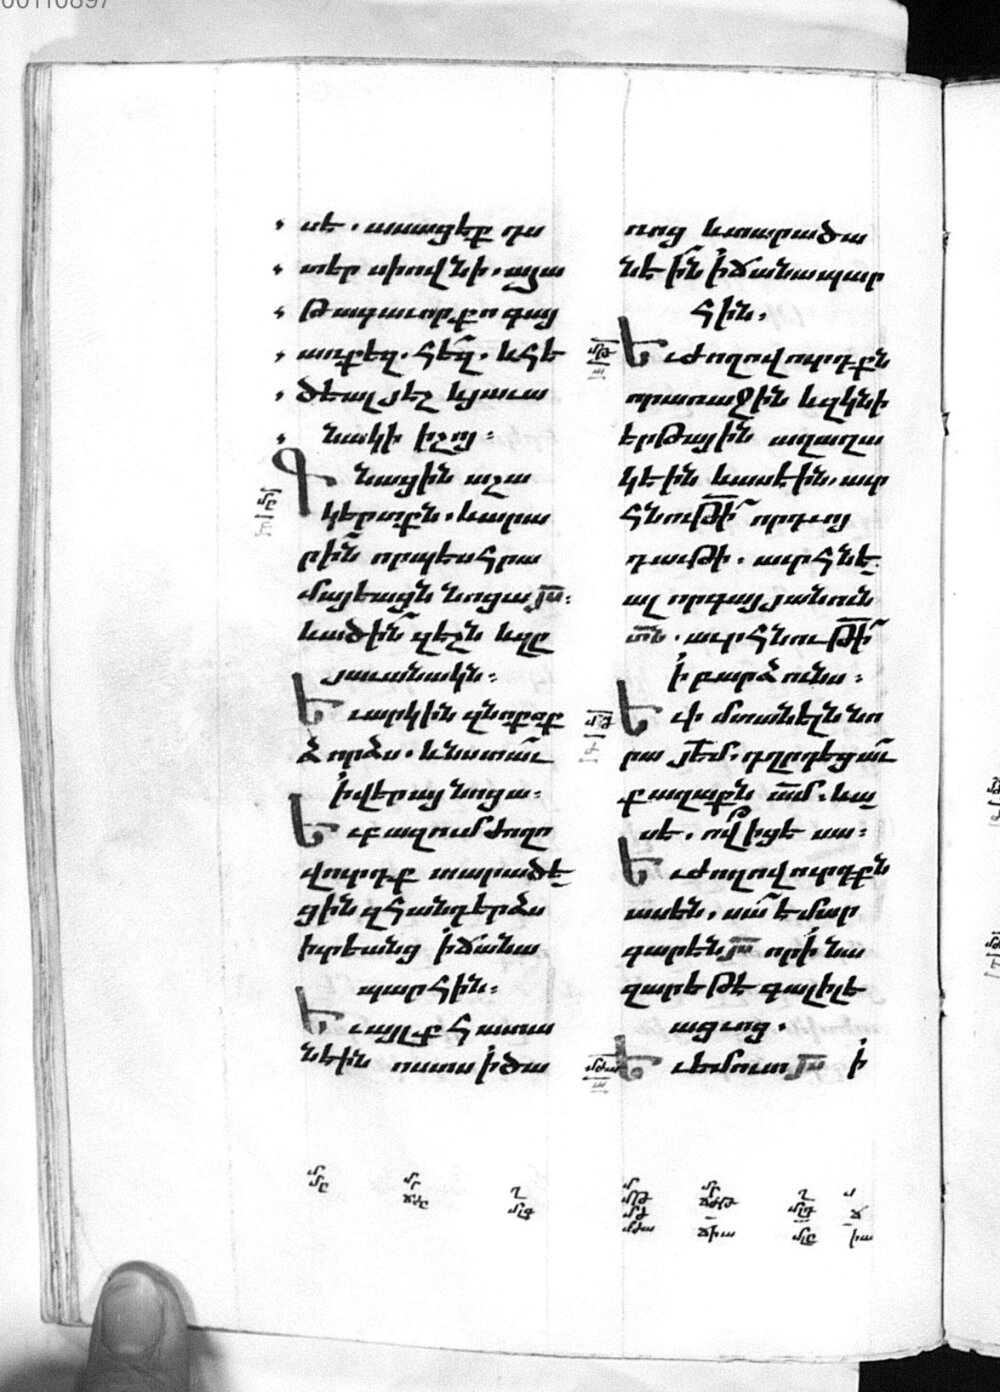 00110897
սէ . ասացէք դս
տեր սիովնի . ահա
թագաւոր քո գայ
առքեզ . հեզ . և հե
ծեալ յէշ և յաւա
նակի իշոյ :
Գնացին աշա
կերտքն . և արա
րին որպէս հրա
մայեացն նոցա յս :
և ածին զէշն և զը
յաւանակն :
Եւ արկին զնոքօք
ձորձս . և նստաւ
ի վերայ նոցա :
Եւ բազում ժողո
վուրդք տարածէ
ցին զհանդերձս
իւրեանց ի ճանա
պարհին :
Եւ այլք հատա
նեին ոստս ի ծա
ռոց և տարածա
նէին ի ճանապար
հին :
Եւ ժողովուրդքն
որ առաջին և զկնի
երթային աղաղա
կէին և ասէին . աւր
հնութի որդւոյ
դաւթի . աւրհնե
ալ որ գայ յանուն
տն . աւրհնութի
ի բարձունս :
Եւ ի մտանելն նո
րա յեմ . դղրդեցաւ
քաղաքն ամ . և ա
սէ . ով իցէ սա :
Եւ ժողովուրդքն
ասեն . սա է մար
գարէն յս որ ի նա
զարեթէ գալիլե
ացւոց .
Եւ եմուտ յս ի